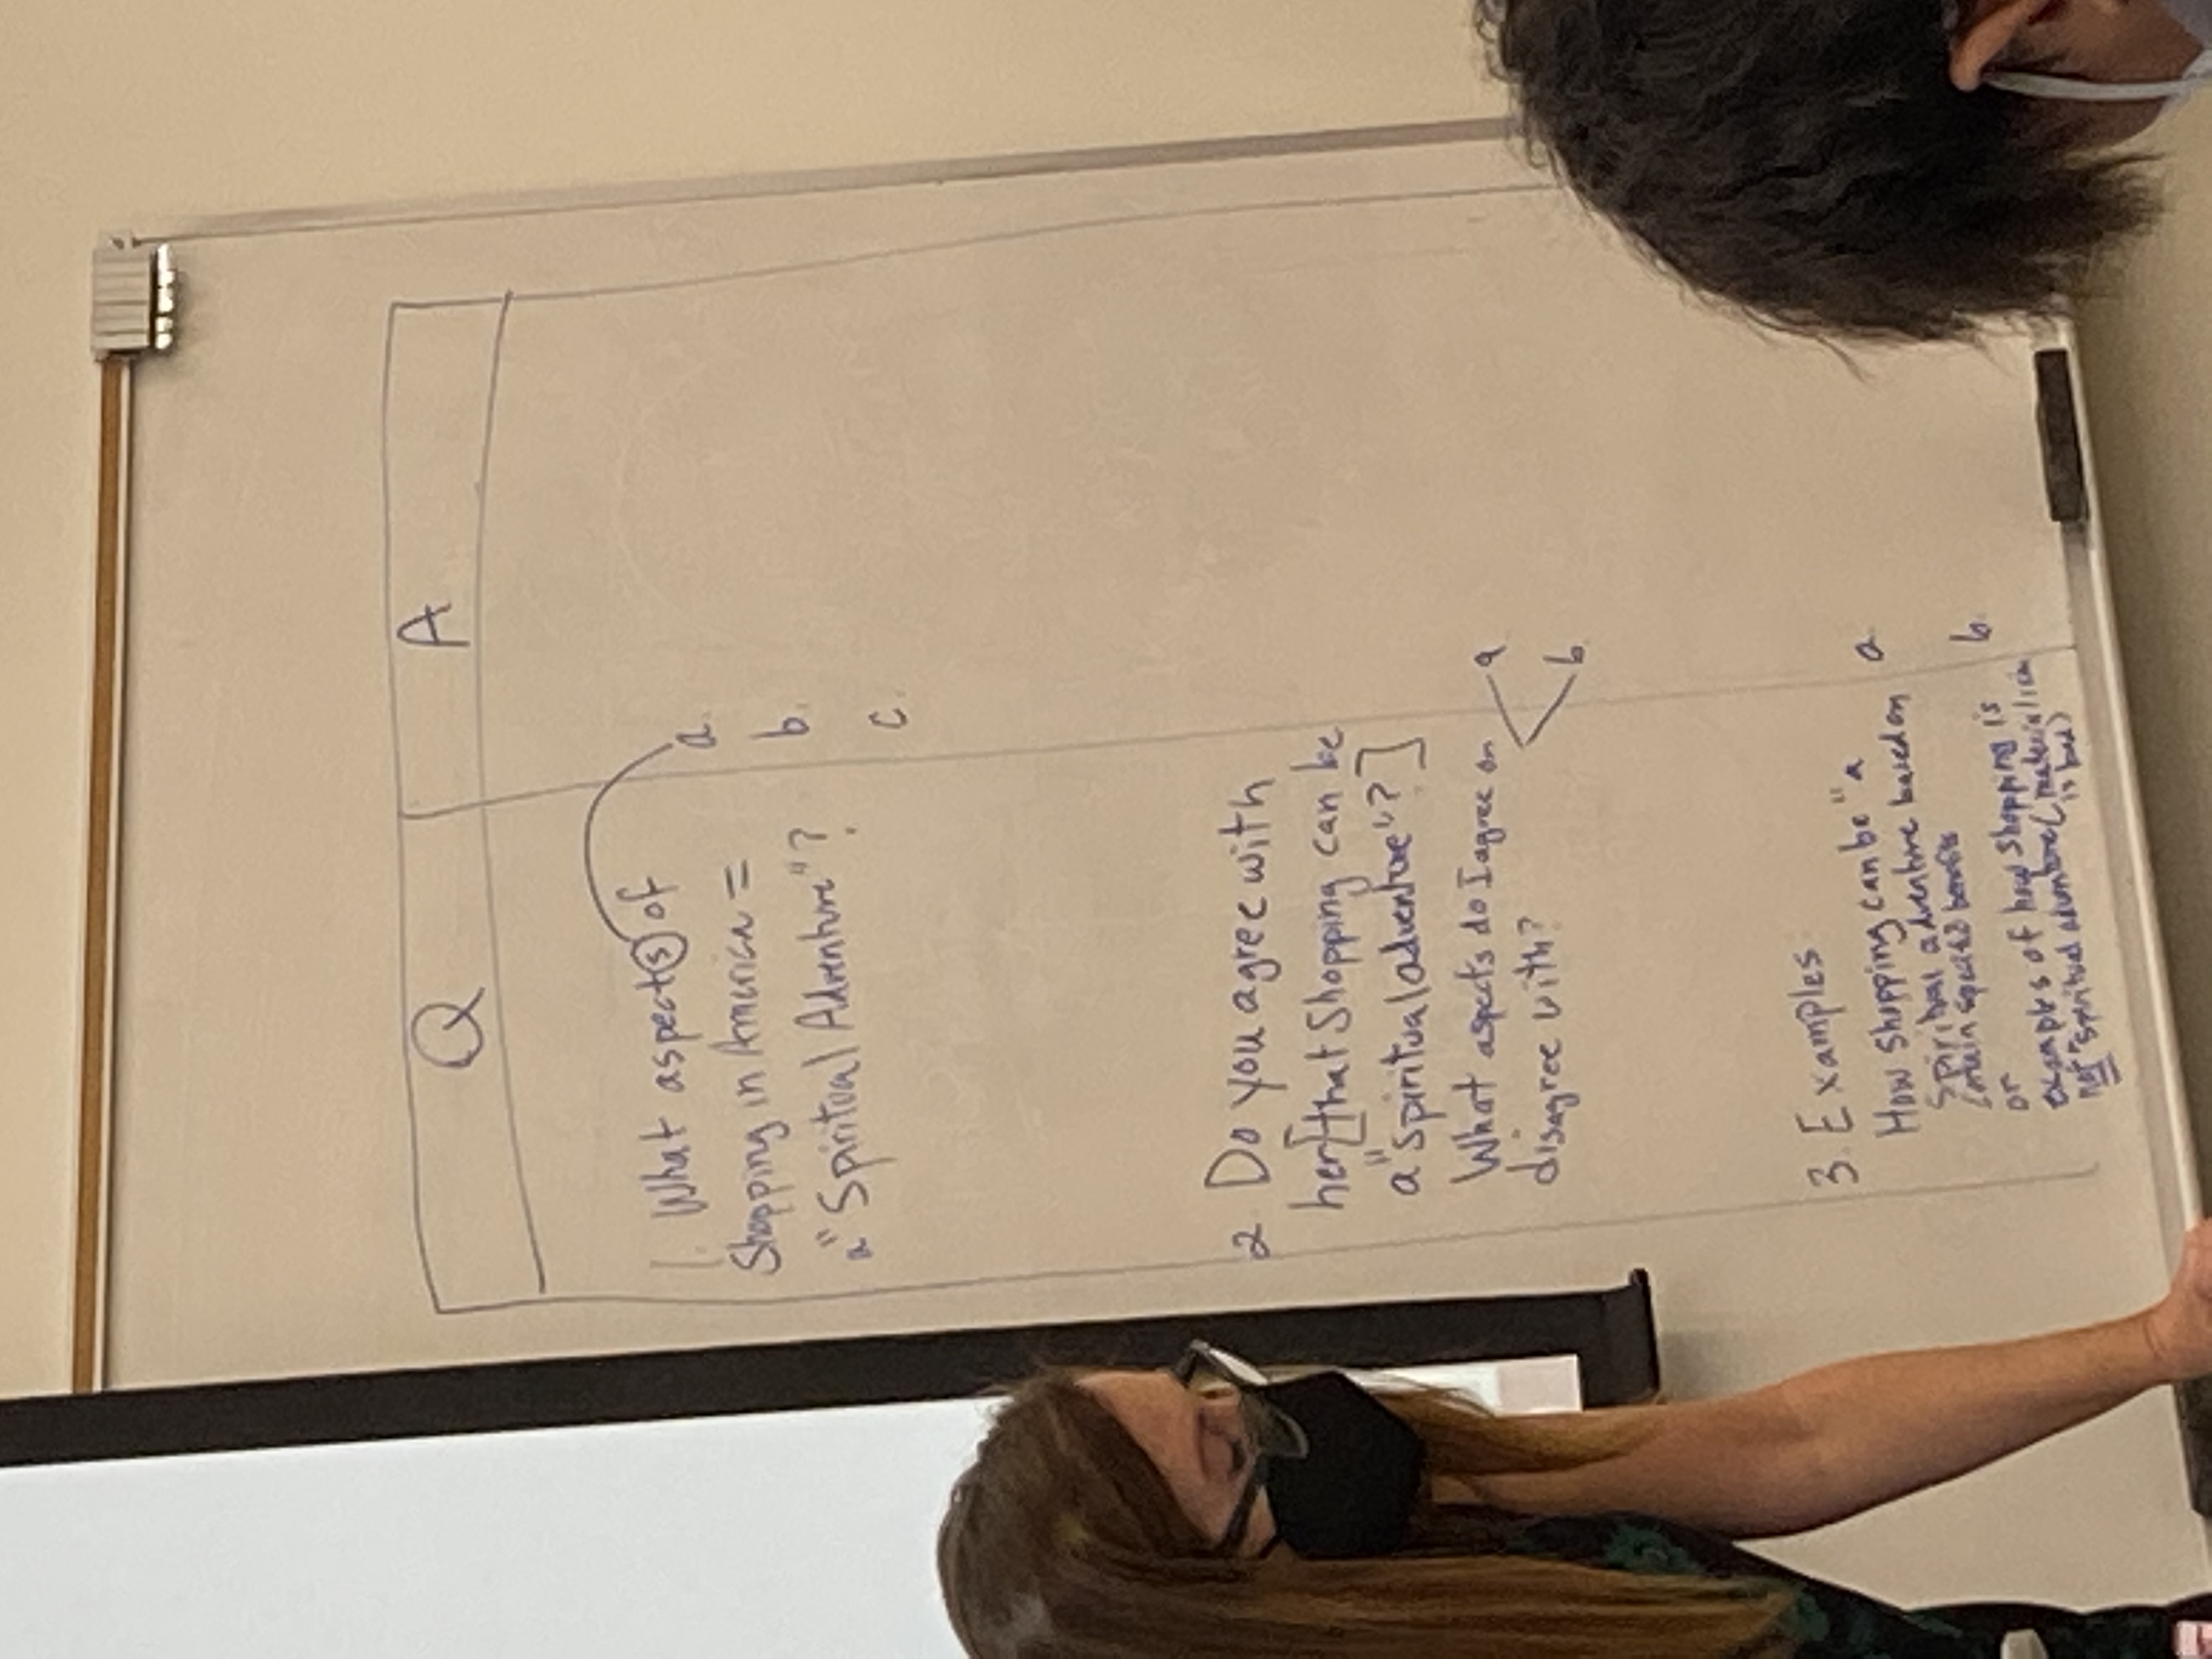 Q A
1. What aspects of
a.
Shopping in America =
b.
a "Spiritual Adventure"?
c.
2 Do you agree with
her [that Shopping can be
a "spiritual adventure"?]
What aspects do I agree on
a
disagree with?
b
3. Examples
How shopping can be "a
a.
Spiritual adventure based on
certain specific benefits
or
b.
examples of how shopping is
not "spiritual adventure (materialism
is bad)